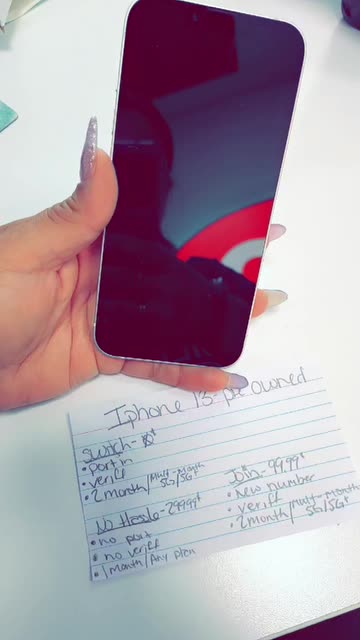 Iphone 13- pre owned
Switch- 0$
• port in
• veriff
• 2 month/Mult-month
5G/5G+
No Hassle- 299.99$
• no port
• no veriff
• 1 month/Any plan
Join- 99.99$
• New number
• veriff
• 2 month/Mult-month
5G/5G+